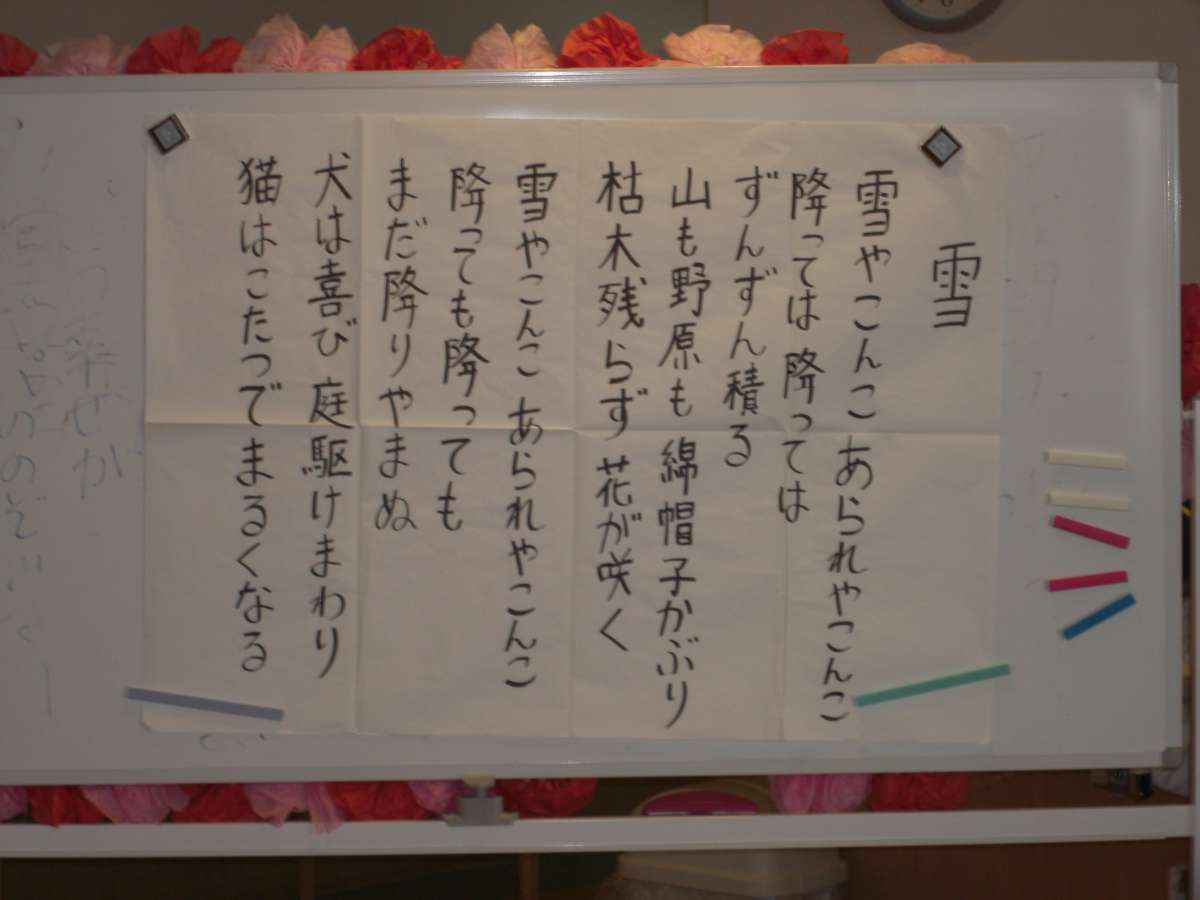 雪
雪やこんこ あられやこんこ
降っては 降っては
ずんずん積る
山も野原も 綿帽子かぶり
枯木残らず 花が咲く
雪やこんこ あられやこんこ
降っても降っても
まだ降りやまぬ
犬は喜び 庭駆けまわり
猫はこたつでまるくなる